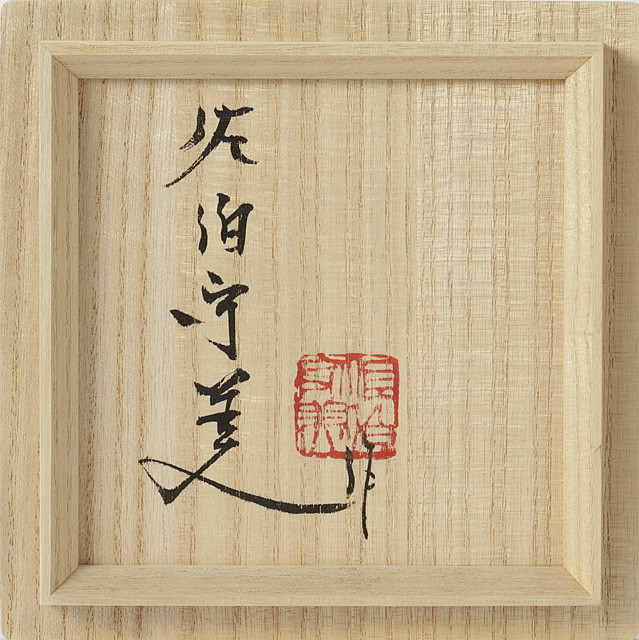 佐伯守美作